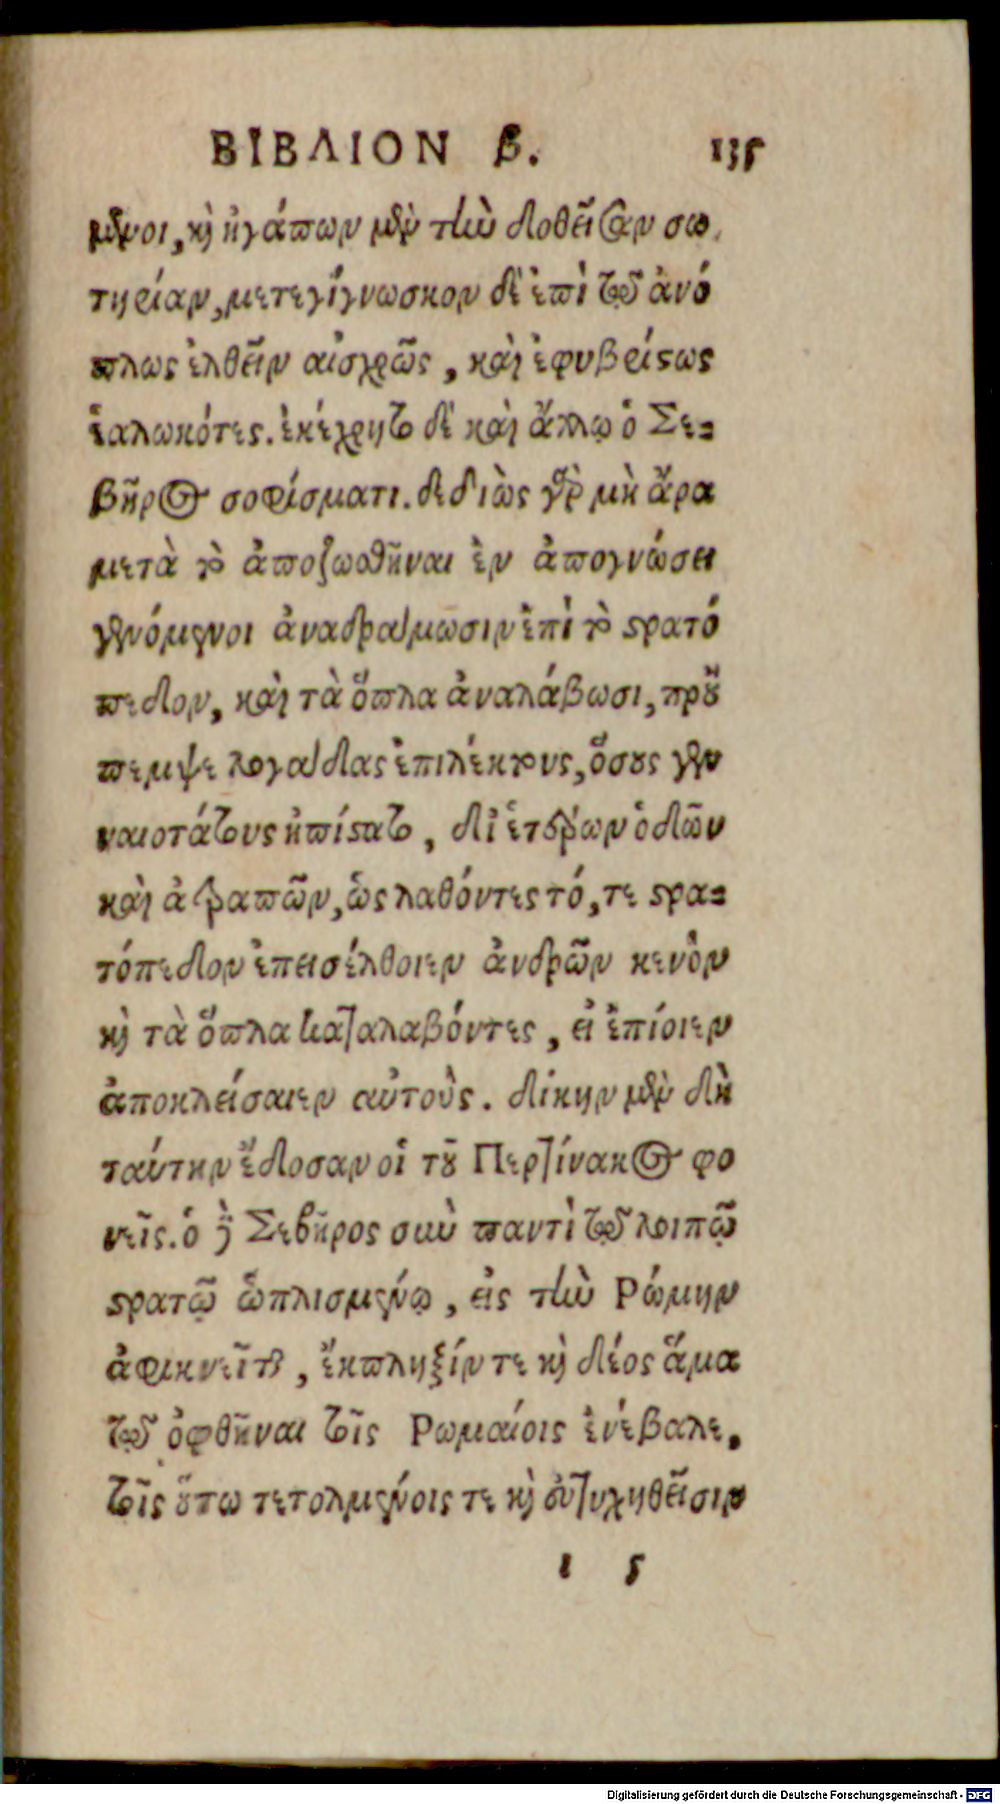 ΒΙΒΛΙΟΝ β. 135
μενοι, καὶ ἠγάπων μὲν τὴν δοθεῖσαν σω
τηρίαν, μετεγίγνωσκον δὲ ἐπὶ τῷ ἀνό
πλως ἐλθεῖν αἰσχρῶς, καὶ ἐφυβρίστως
ἑαλωκότες. ἐκέχρητο δὲ καὶ ἄλλῳ ὁ Σε-
βῆρος σοφίσματι. δεδιὼς γὰρ μὴ ἄρα
μετὰ τὸ ἀποζωσθῆναι ἐν ἀπογνώσει
γενόμενοι ἀναδράμωσιν ἐπὶ τὸ στρατό
πεδον, καὶ τὰ ὅπλα ἀναλάβωσι, πρού
πεμψε λογάδας ἐπιλέκτους, ὅσους γεν
ναιοτάτους ἠπίστατο, δι' ἑτέρων ὁδῶν
καὶ ἀτραπῶν, ὡς λαθόντες τό, τε στρα-
τόπεδον ἐπεισέλθοιεν ἀνδρῶν κενὸν
καὶ τὰ ὅπλα καταλαβόντες, εἰ ἐπίοιεν
ἀποκλείσαιεν αὐτοὺς. δίκην μὲν δὴ
ταύτην ἔδοσαν οἱ τοῦ Περτίνακος φο
νεῖς. ὁ δὲ Σεβῆρος σὺν παντὶ τῷ λοιπῷ
στρατῷ ὡπλισμένῳ, εἰς τὴν Ρώμην
ἀφικνεῖται, ἔκπληξίν τε καὶ δέος ἅμα
τῷ ὀφθῆναι τοῖς Ρωμαίοις ἐνέβαλε,
τοῖς οὕτω τετολμημένοις τε καὶ εὐτυχηθεῖσιν
ι 5
Digitalisierung gefördert durch die Deutsche Forschungsgemeinschaft - DFG